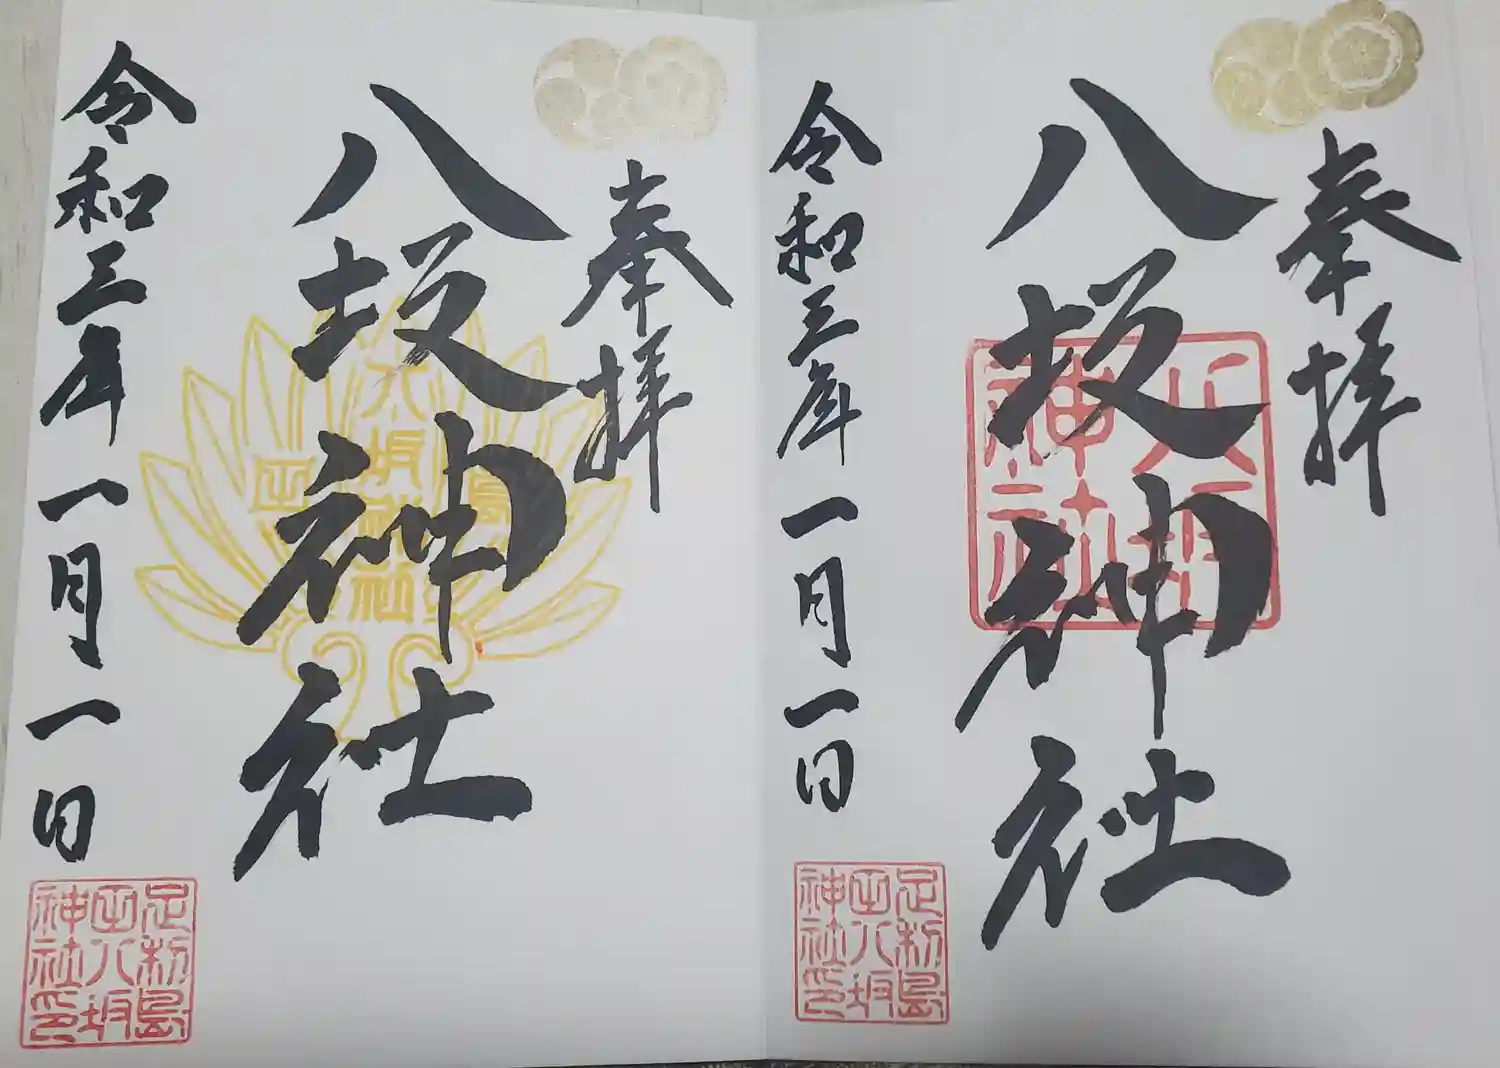 奉拝
八坂神社
令和三年一月一日
八坂
神社
足利島
田八坂
神社印
奉拝
八坂神社
令和三年一月一日
足利島
田八坂
神社印